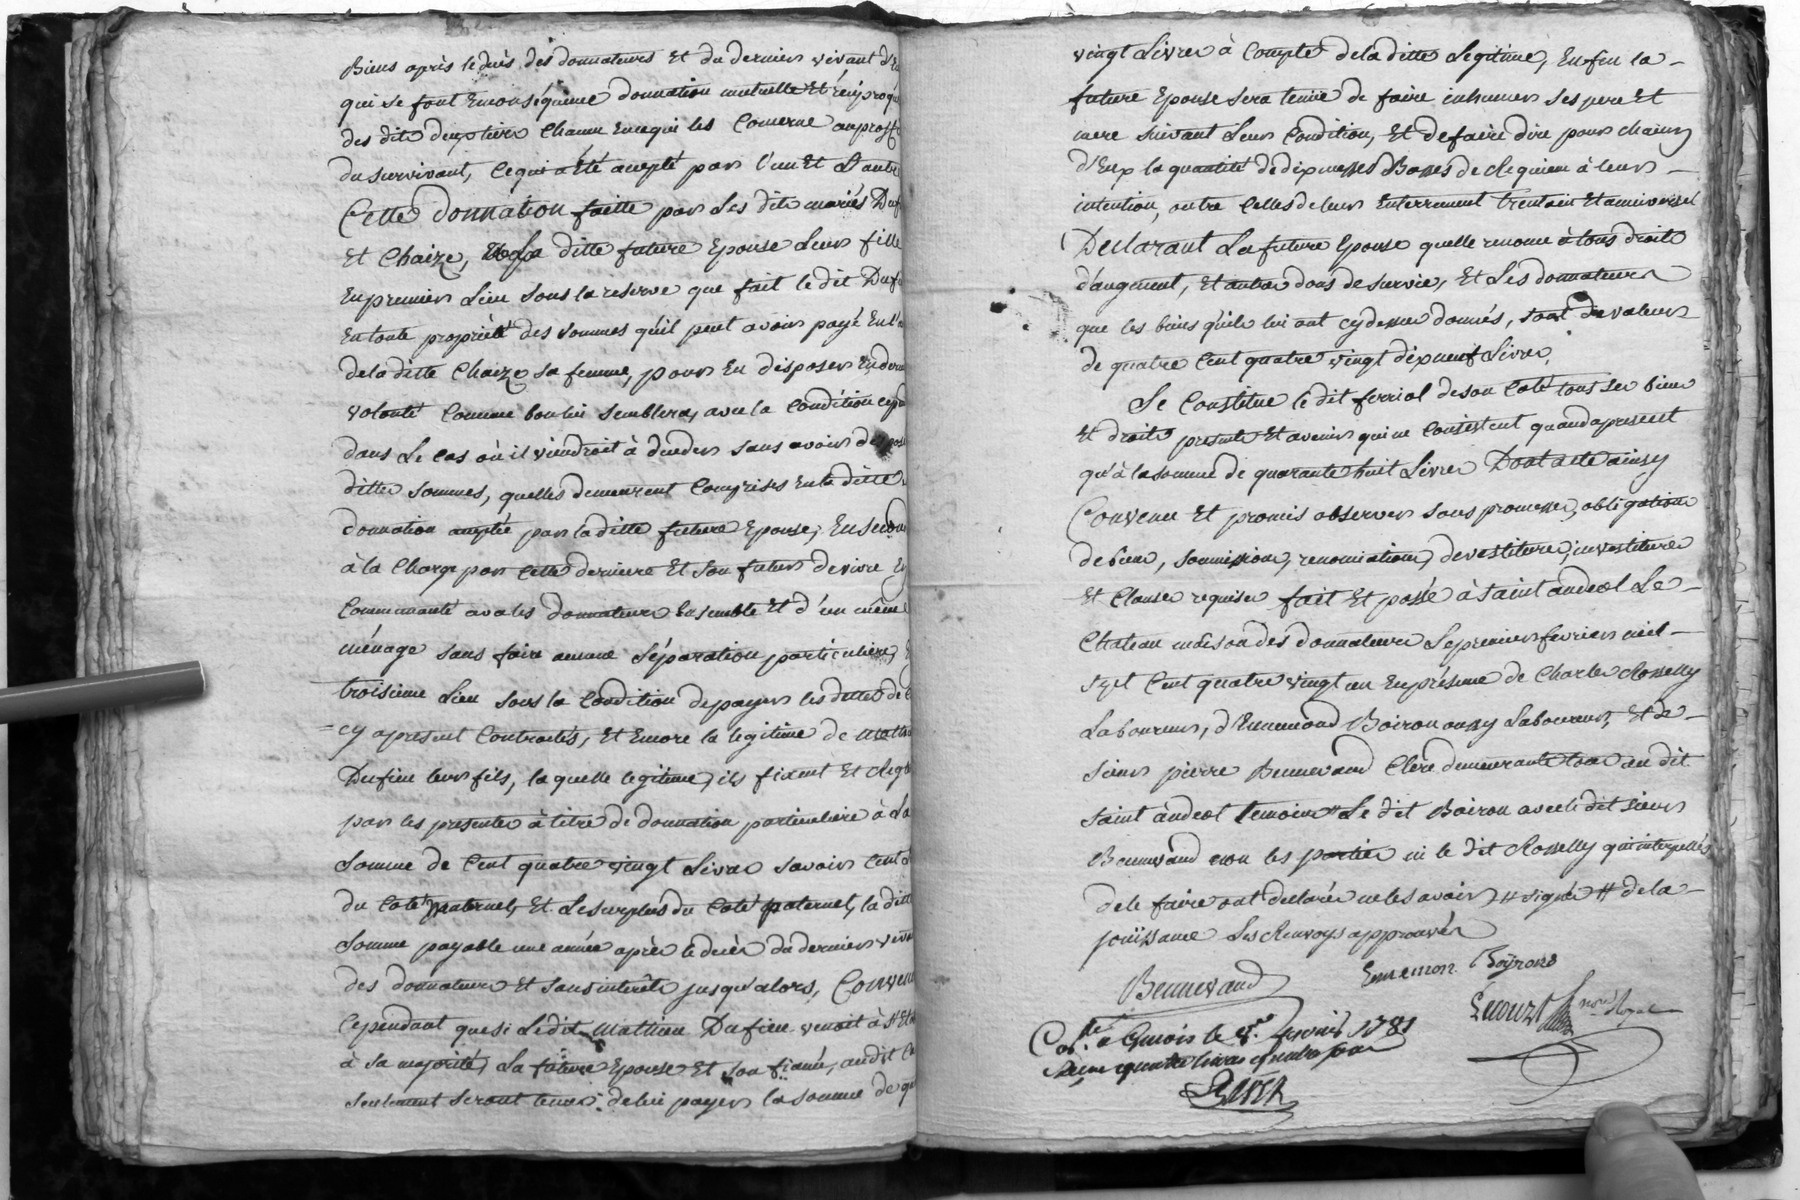 Biens après le decès des donnateurs et du dernier vivant d'Eu
qui se font En conséquence donnation mutuelle et réciproq
des dits deux tiers chacun En ce qui les Concerne au proff
du survivant, ce qui a été accepté par l'un Et L'autre
Cette donnation faitte par Les dits mariés Duf
et Chaize, à La ditte future Epouse Leur fille
En premier Lieu sous la reserve que fait le dit Duf
En toute propriété des sommes qu'il peut avoir payé En l'a
de la ditte Chaize sa femme, pour En disposer En dern
volonté Comme bon lui semblera, avec la condition cep
dans Le cas où il viendroit à deceder sans avoir
dittes sommes, quelles demeurent Comprises En la ditte
donnation acceptée par la ditte future Epouse, En second
à la Charge par Cette derniere Et son futur de vivre En
Communauté avec les donnateurs Ensemble Et d'un même
ménage sans faire aucune séparation particulière, E
troisieme Lieu sous la Condition de payer les dettes de C
=cy apresent Contractés, Et Encore la legitime de Matth
Dufieu leur fils, la quelle legitime, ils fixent Et Regl
par les presentes à titre de donnation particuliere à La
Somme de Cent quatre vingt Livres savoir Cent L
du Coté maternel, Et Le surplus du Coté paternel, la ditte
Somme payable une année après le decès du dernier viva
des donnateurs Et sans interêts jusqu'alors, Conven
Cependant que si Le dit Mathieu Dufieu venoit à s'Et
à sa majorité, La future Epouse Et son fiancé, au dit C
seulement seront tenus de lui payer la somme de qu
vingt Livres à Compte de la ditte Legitime, Enfin la-
future Epouse sera tenue de faire inhumer ses pere Et
mere suivant Leur Condition, Et de faire dire pour chacun
d'Eux la quantité de dix messes Basses de Requiem à leur-
intention, outre Celles de leurs Enterrement Trentain Et anniversel
Declarant La future Epouse quelle renonce à tous droits
d'augment, Et autres dons de survie, Et Les donnateurs
que les biens qu'ils lui ont cy dessus donnés, sont de valeur-
de quatre Cent quatre vingt dix neuf Livres,
Se Constitue le dit ferriol de son Coté tous ses biens
Et droits presents Et avenirs qui ne Consistent quand apresent
qu'à la somme de quarante huit Livres Dont acte ainsy
Convenu Et promis observer sous promesses, obligations
de biens, soumissions, renonciations, devestitures, investitures
Et Clauses requises fait Et passé à Saint andeol Le-
Chateau maison des donnateurs Le premier fevrier mil-
sept Cent quatre vingt un En présence de Charles Rosselly
Laboureur, d'Ennemond Boiron aussy Laboureur, Et de-
sieur pierre Bennevand Clerc demeurants tous au dit
saint andeol temoins Le dit Boiron avec le dit sieur
Bennevand non les parties ni le dit Rosselly qui interpellés
de le faire ont declarés ne les avoir # signés # de la-
jouïssance Les Renvoys approuvés
Bennevand Ennemon Boyron
not. Royal
Con.lé a Givois le 8.e fevrier 1781
Reçu quatre livres quatre sous